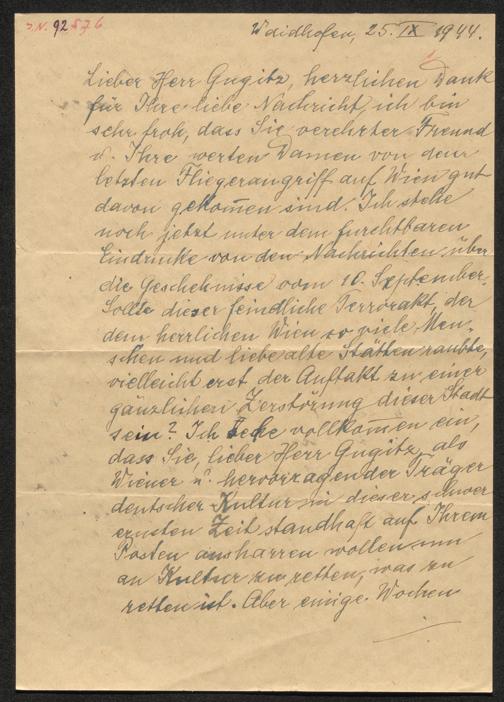 J.N. 92576
Waidhofen, 25. IX 1944.
Lieber Herr Gugitz, herzlichen Dank
für Ihre liebe Nachricht, ich bin
sehr froh, dass Sie verehrter Freund
u. Ihre werten Damen von dem
letzten Fliegerangriff auf Wien gut
davon gekom̅en sind. Ich stehe
noch jetzt unter dem furchtbaren
Eindrucke von den Nachrichten über
die Geschehnisse vom 10. September.
Sollte dieser feindliche Terrorakt, der
dem herrlichen Wien so viele Men-
schen und liebe alte Stätten raubte,
vielleicht erst der Auftakt zu einer
gänzlichen Zerstörung dieser Stadt
sein? Ich sehe vollkom̅en ein,
dass Sie, lieber Herr Gugitz, als
Wiener u. hervorragender Träger
deutscher Kultur in dieser schwer
ernsten Zeit standhaft auf Ihrem
Posten ausharren wollen um
an Kultur zu retten, was zu
retten ist. Aber einige Wochen